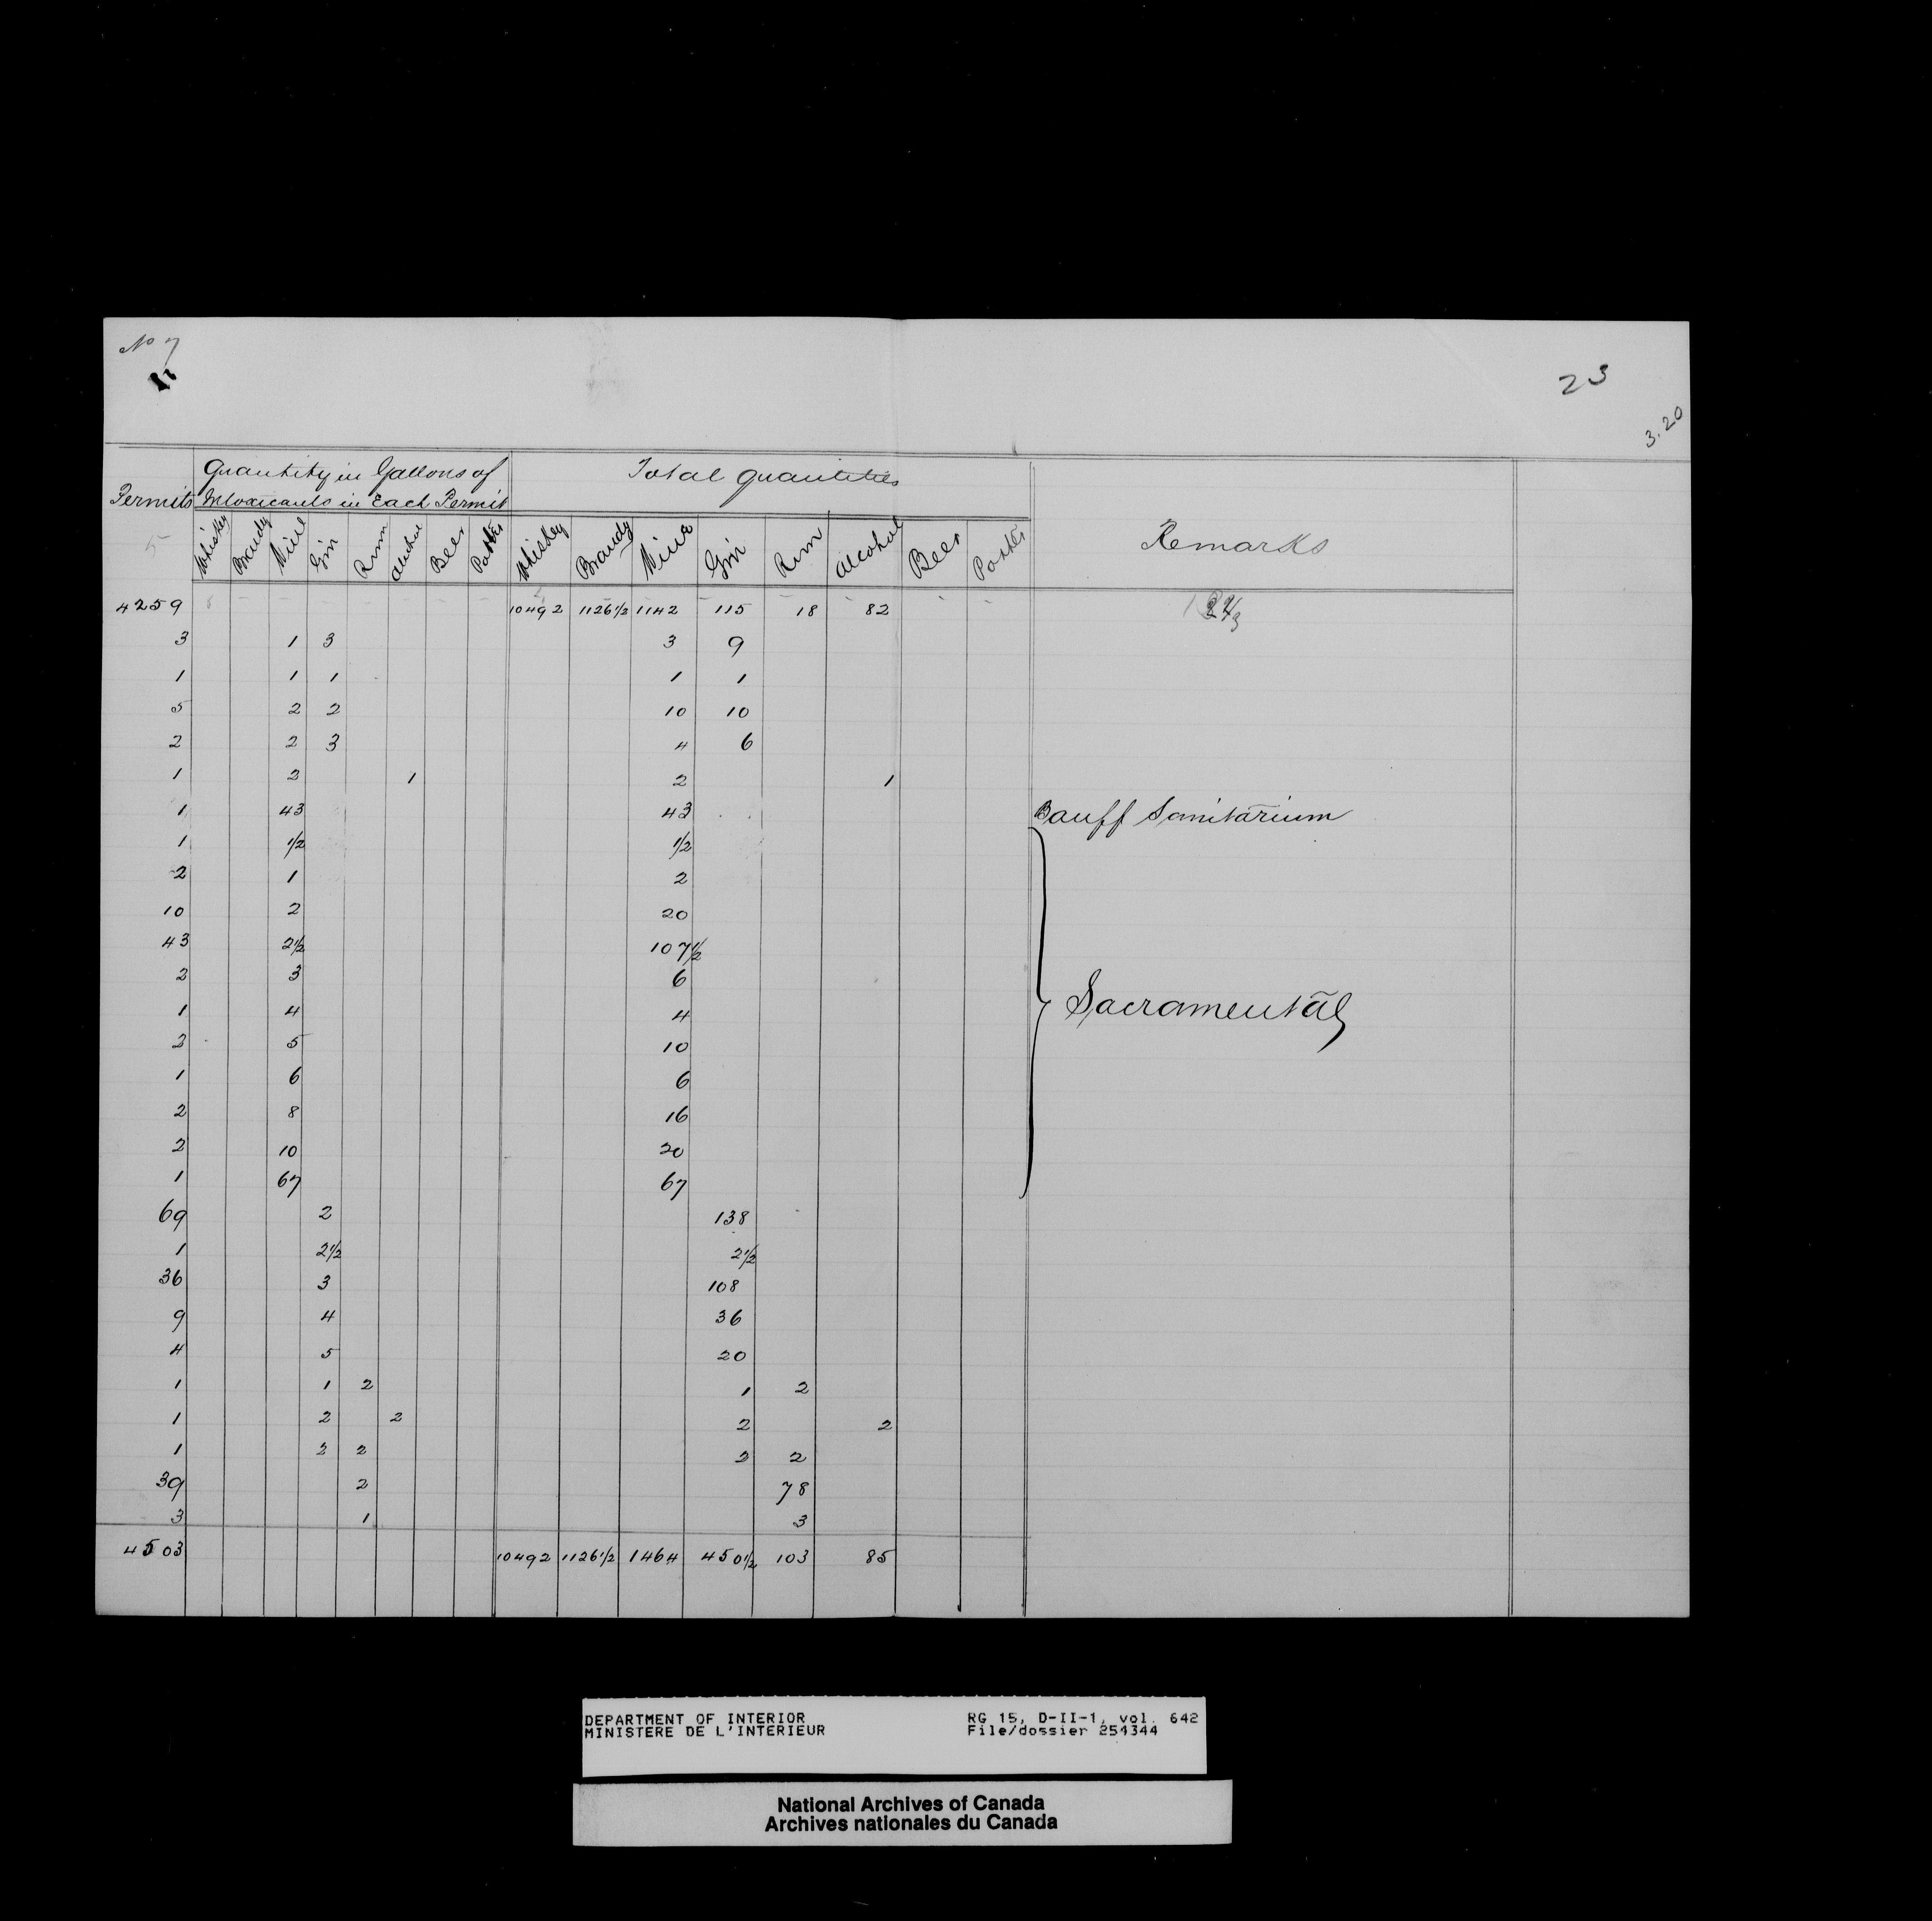 No 7
23
3.20
Quantity in Gallons of Total Quantities
Permits Intoxicants in Each Permit
Whiskey Brandy Wine Gin Rum Alcohol Beer Porter Whiskey Brandy Wine Gin Rum Alcohol Beer Porter Remarks
4259 10492 1126 1/2 1142 115 18 82
3 1 3 3 9
1 1 1 1 1
5 2 2 10 10
2 2 3 4 6
1 2 1 2 1
1 43 43 Banff Sanitarium
1 1/2 1/2
2 1 2
10 2 20
43 2 1/2 107 1/2
2 3 6
1 4 4 Sacramental
2 5 10
1 6 6
2 8 16
2 10 20
1 67 67
69 2 138
1 2 1/2 2 1/2
36 3 108
9 4 36
4 5 20
1 1 2 1 2
1 2 2 2 2
1 2 2 2 2
39 2 78
3 1 3
4503 10492 1126 1/2 1464 450 1/2 103 85
DEPARTMENT OF INTERIOR RG 15, D-II-1, vol. 642
MINISTERE DE L'INTERIEUR File/dossier 254344
National Archives of Canada
Archives nationales du Canada